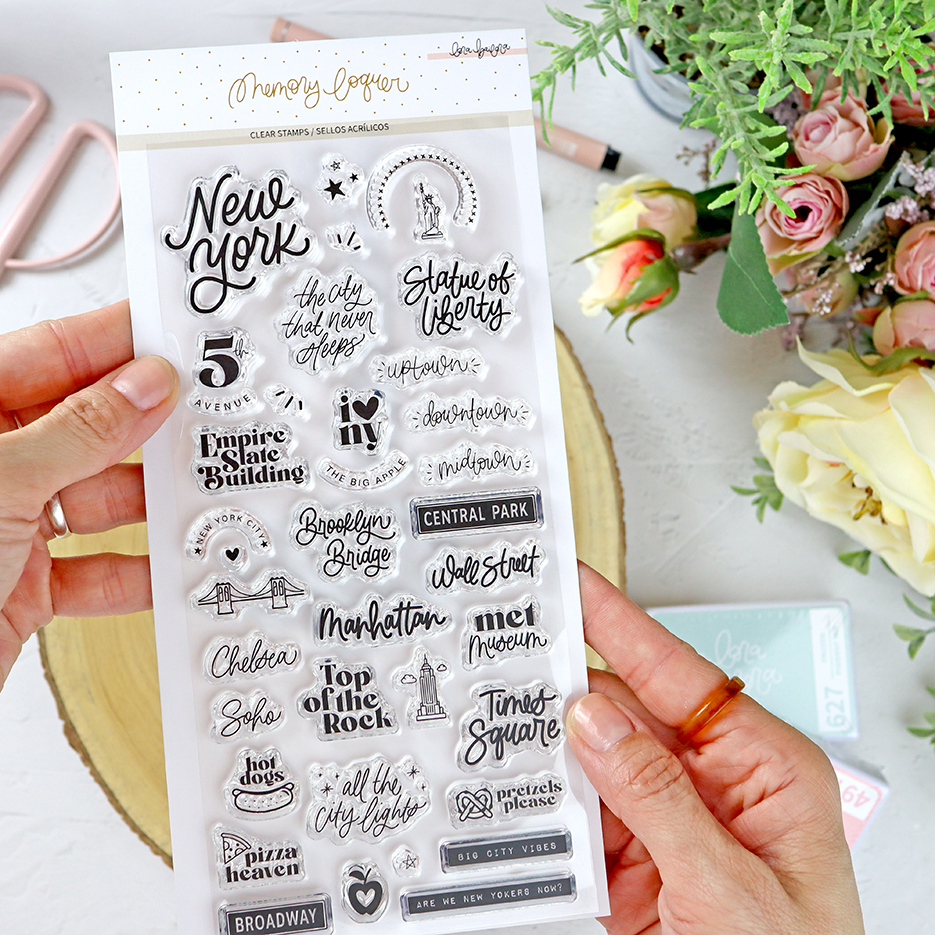 lora bailora
Memory loquer
CLEAR STAMPS / SELLOS ACRÍLICOS
New
York
the city
that never
sleeps
Statue of
liberty
5th
AVENUE
uptown
i
ny
THE BIG APPLE
downtown
midtown
Empire
State
Building
CENTRAL PARK
NEW YORK CITY
Brooklyn
Bridge
Wall Street
Manhattan
met
museum
Chelsea
Top
of the
Rock
Soho
Times
Square
hot
dogs
all the
city lights
pretzels
please
pizza
heaven
BIG CITY VIBES
ARE WE NEW YOKERS NOW?
BROADWAY
lora
627
49